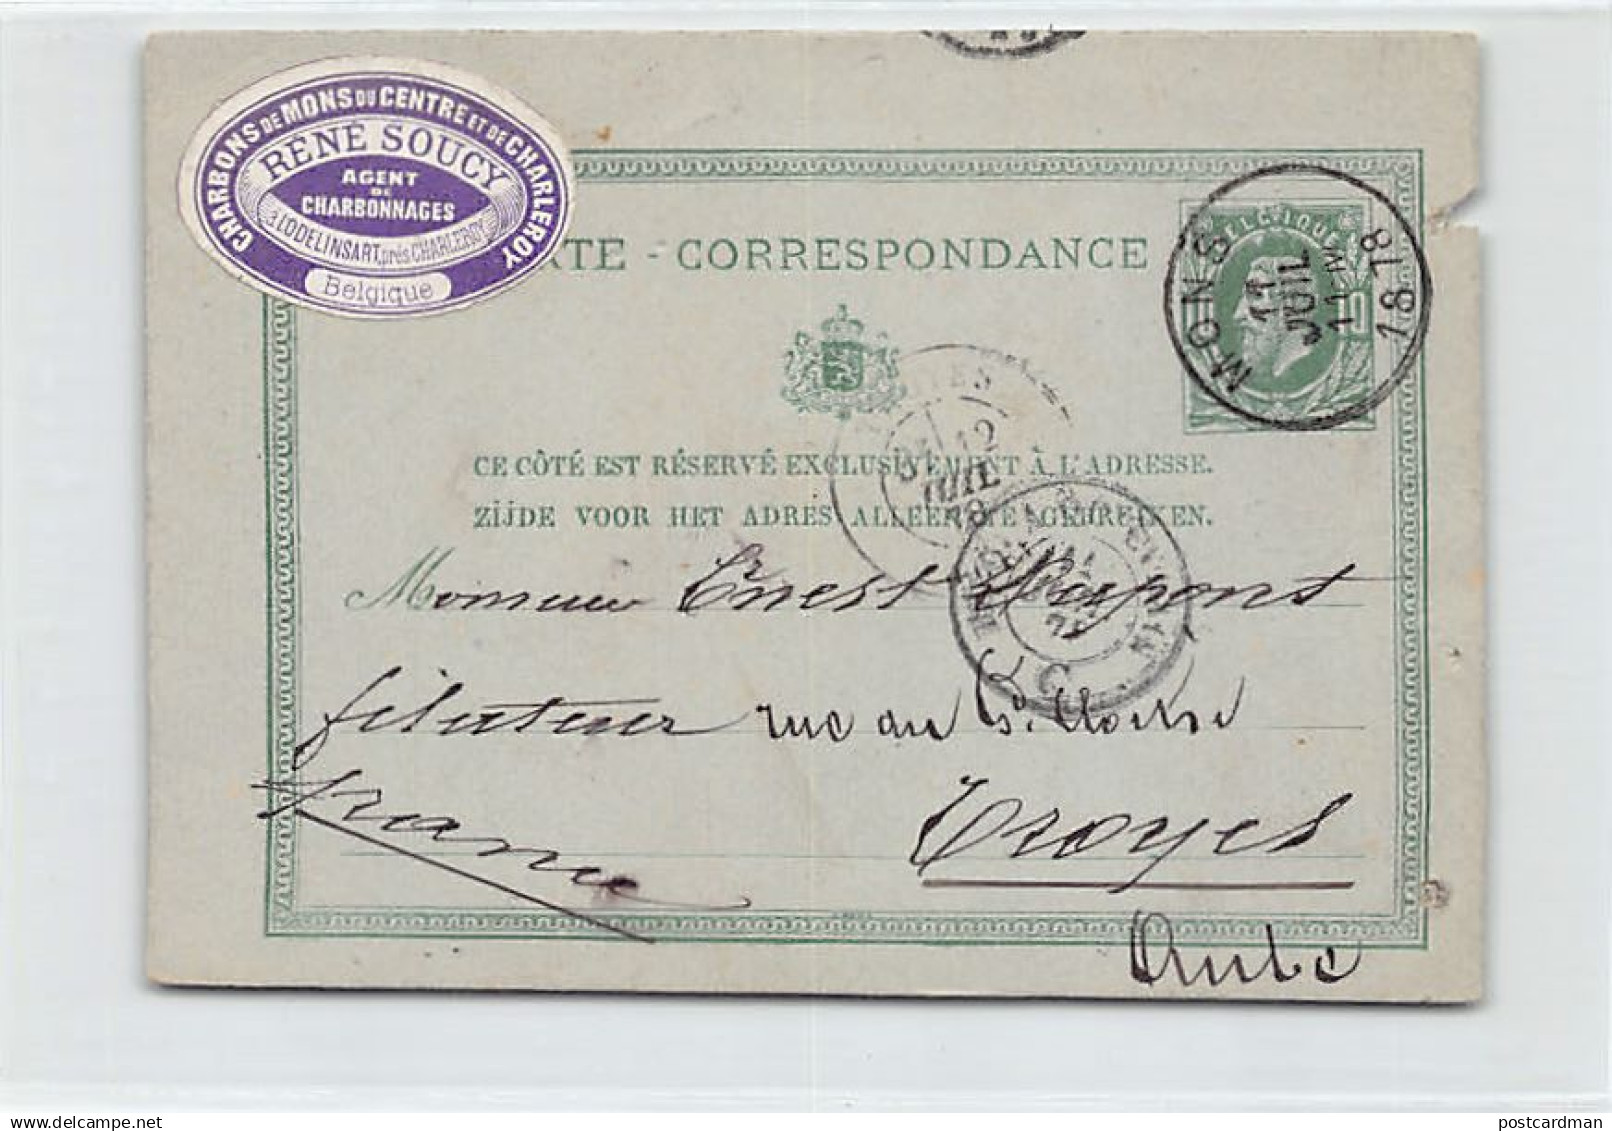 CHARBONS DE MONS DU CENTRE ET DE CHARLEROY
RÉNÉ SOUCY
AGENT
DE
CHARBONNAGES
à LODELINSART, près CHARLEROY
Belgique
RTE - CORRESPONDANCE
BELGIQUE
10
MONS
11
JUIL
11-M
1878
CE CÔTÉ EST RÉSERVÉ EXCLUSIVEMENT À L'ADRESSE.
ZIJDE VOOR HET ADRES ALLEEN TE GEBRUIKEN.
12
JUIL
Monsieur Ernest Dupont
filateur rue du
Troyes
France
Aube
postcardman